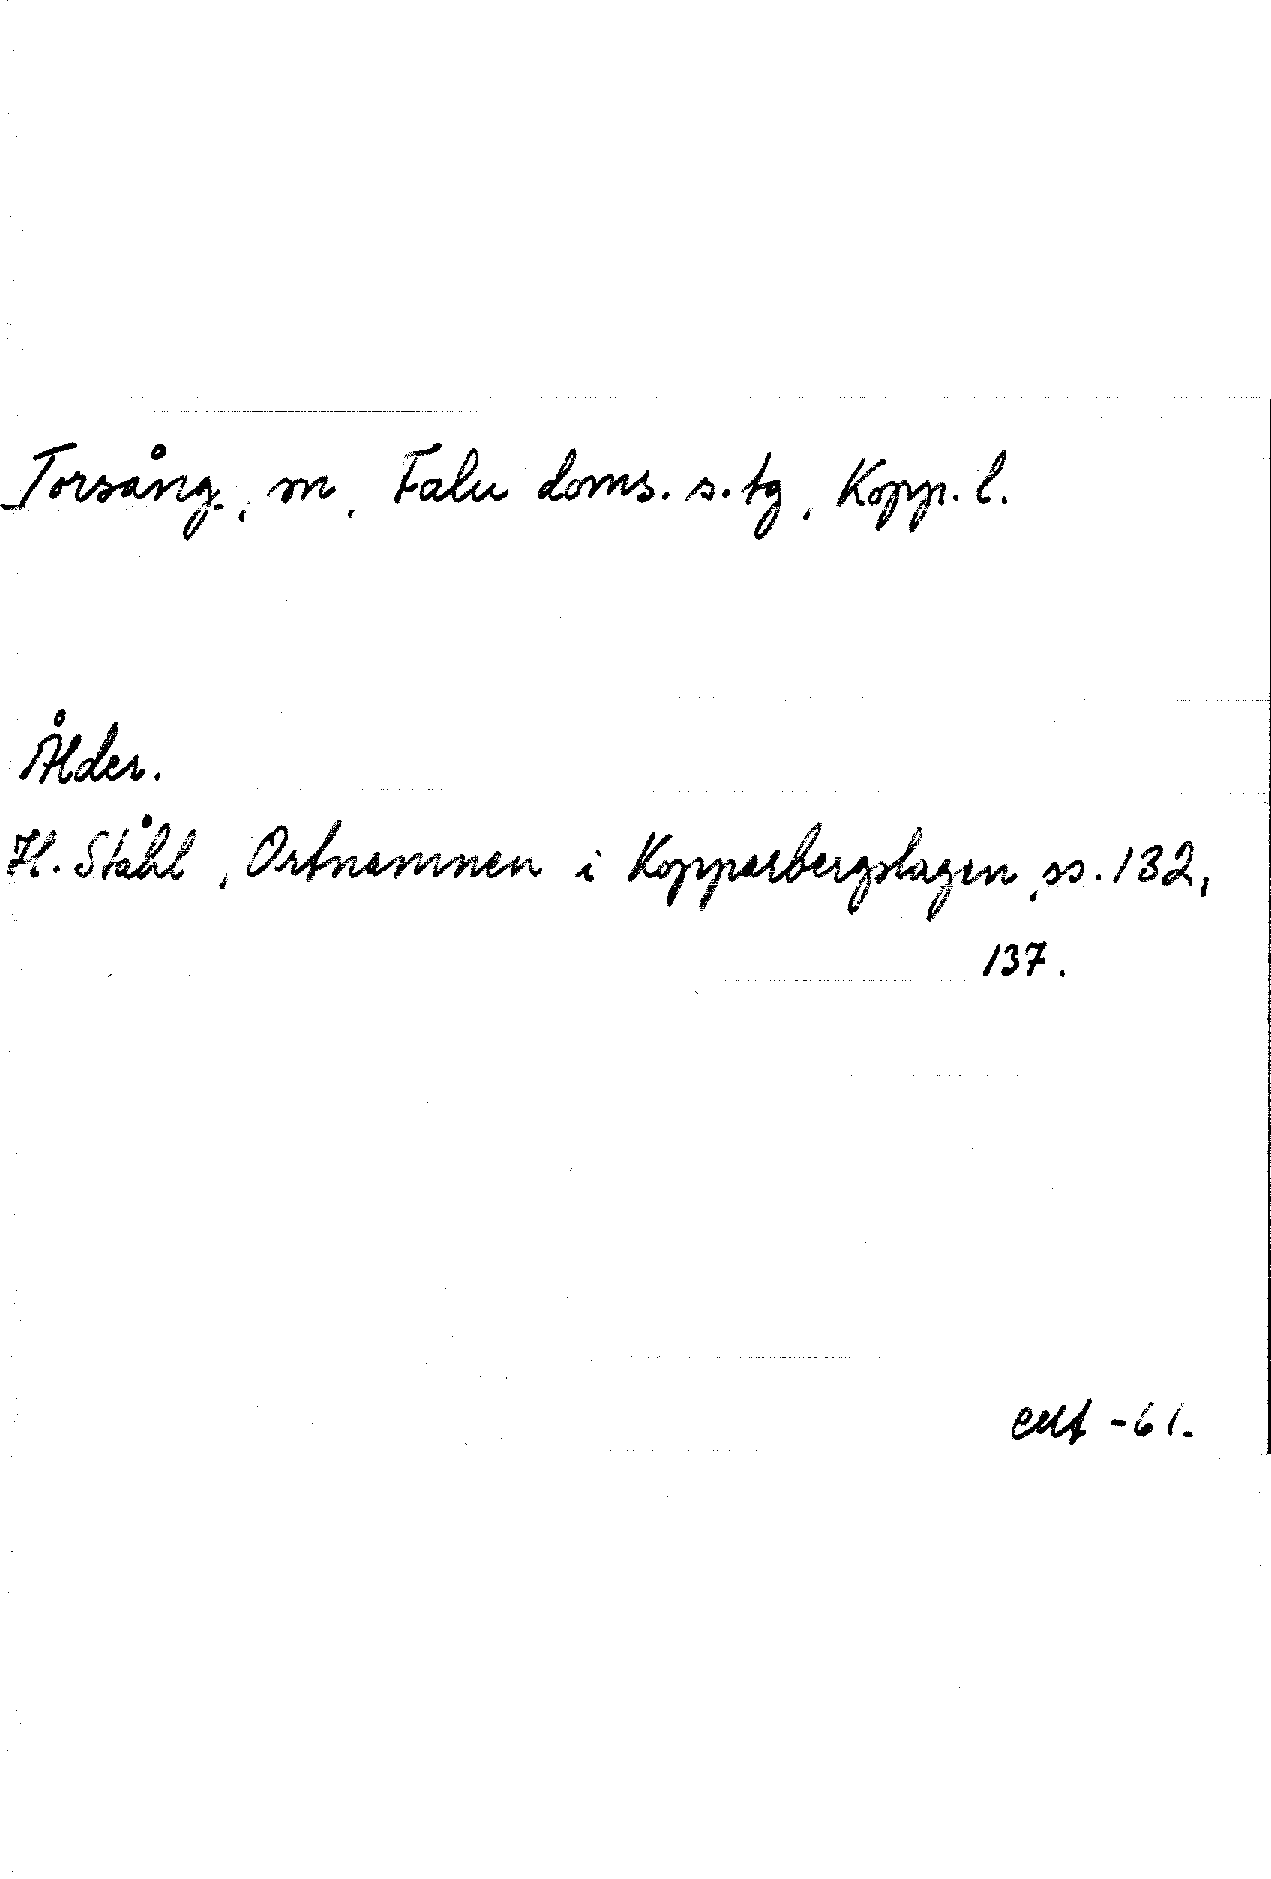 Torsång, sn, Falu doms. s. tg, Kopp. l.
Ålder.
H. Ståhl, Ortnamnen i Kopparbergslagen, ss. 132,
137.
-61.